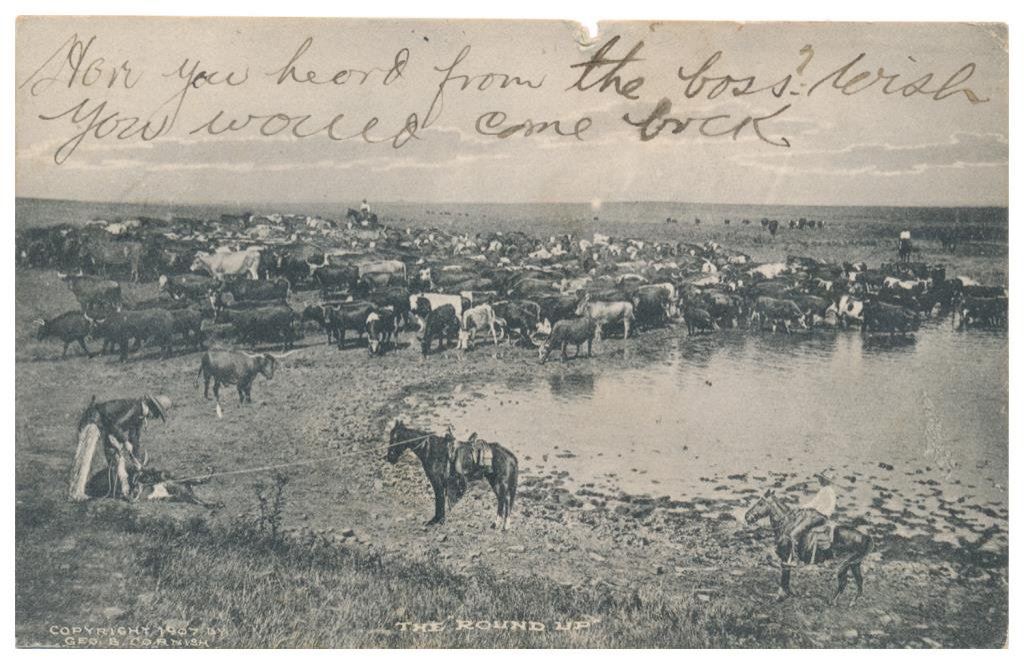 Hav you heard from the boss? Wish
you would come back.
COPYRIGHT 1907 BY
GEO. B. CORNISH
THE "ROUND UP"